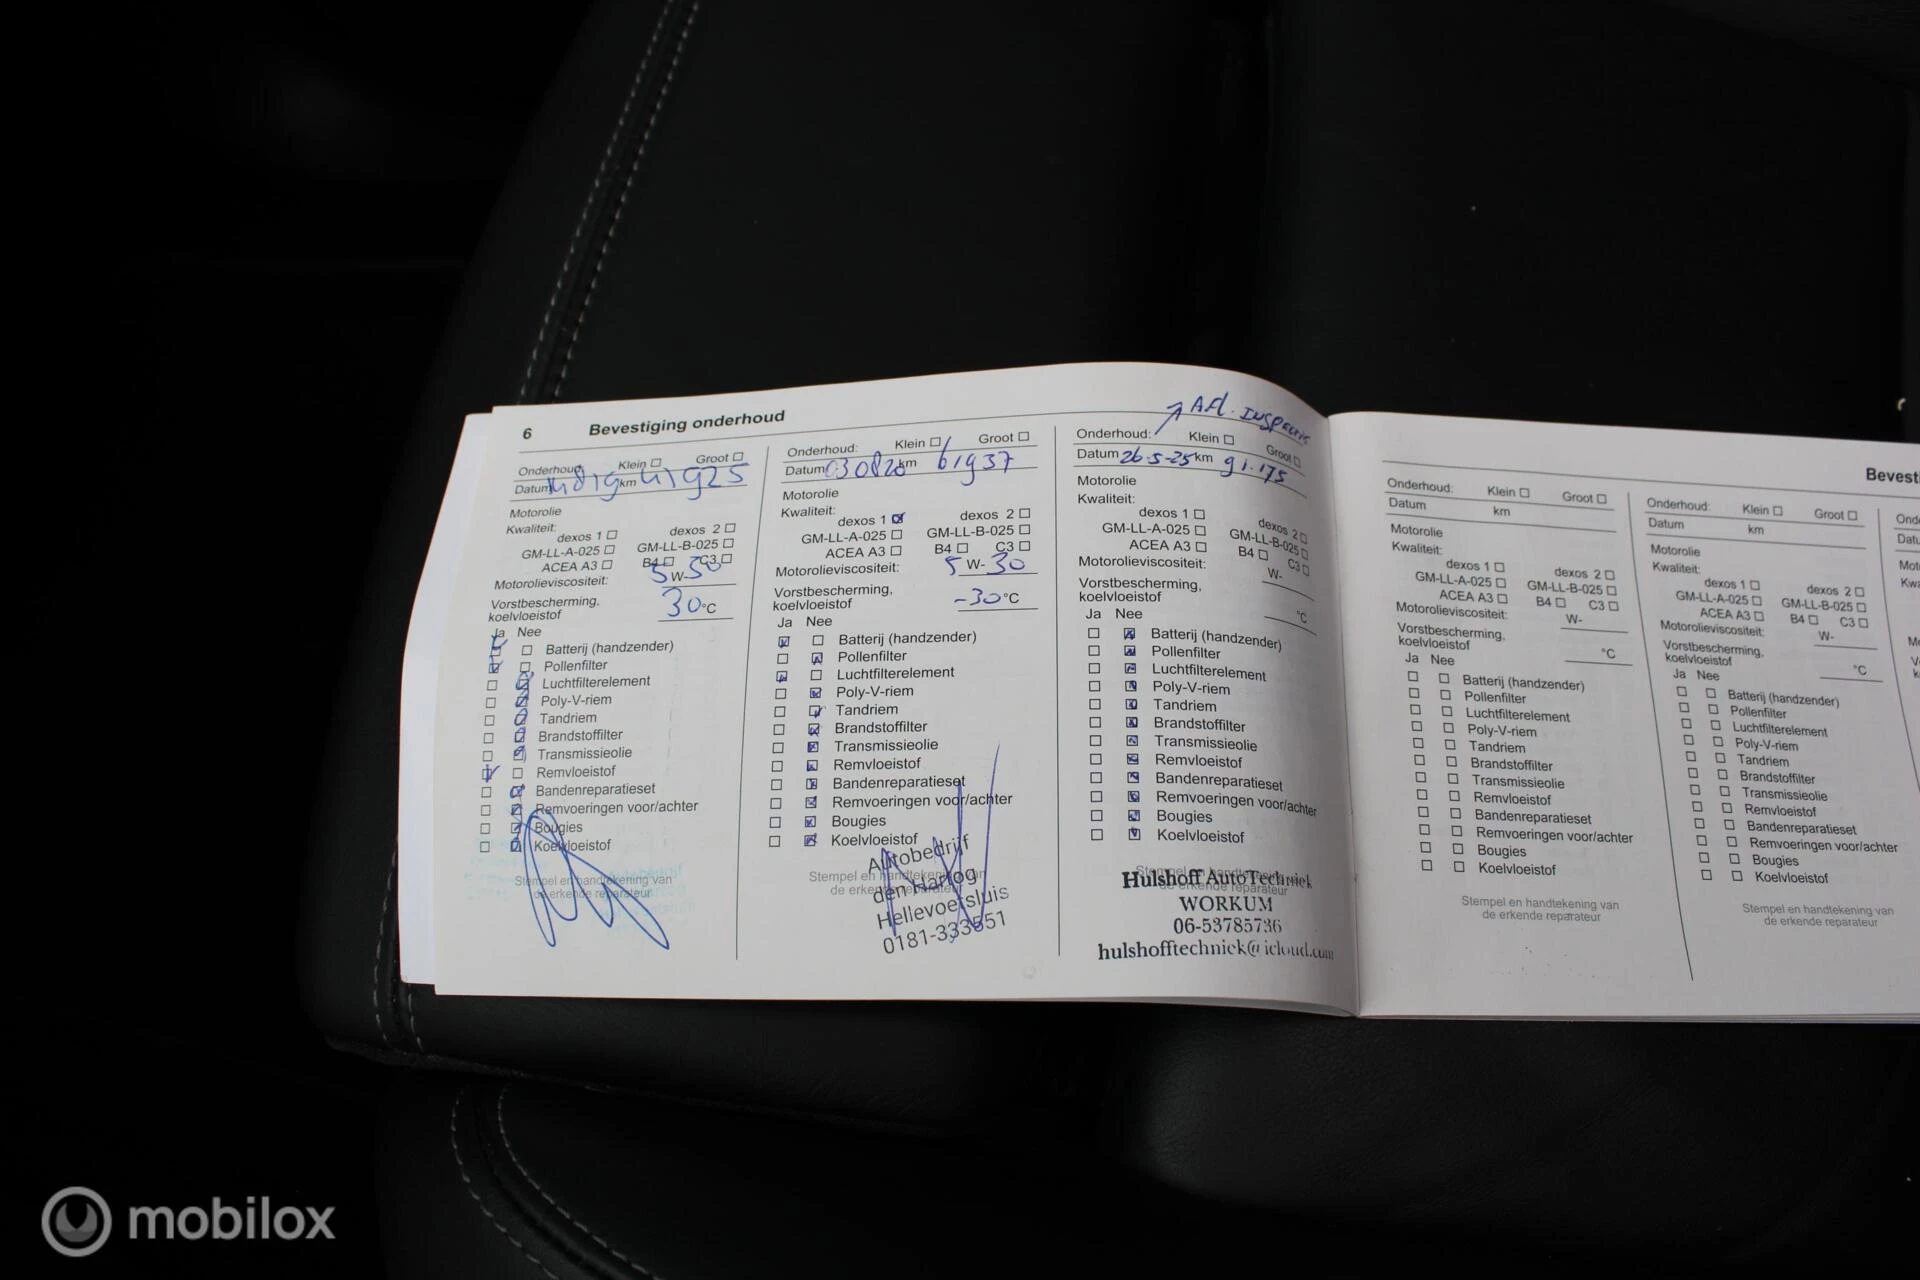 6 Bevestiging onderhoud
Onderhoud: Klein Groot
Datum km 41925
Motorolie
Kwaliteit:
dexos 1 dexos 2
GM-LL-A-025 GM-LL-B-025
ACEA A3 B4 C3
Motorolieviscositeit: 5 W- 30
Vorstbescherming,
koelvloeistof 30 °C
Ja Nee
Batterij (handzender)
Pollenfilter
Luchtfilterelement
Poly-V-riem
Tandriem
Brandstoffilter
Transmissieolie
Remvloeistof
Bandenreparatieset
Remvoeringen voor/achter
Bougies
Koelvloeistof
Stempel en handtekening van
de erkende reparateur
Onderhoud: Klein Groot
Datum 030820 km 61937
Motorolie
Kwaliteit:
dexos 1 dexos 2
GM-LL-A-025 GM-LL-B-025
ACEA A3 B4 C3
Motorolieviscositeit: 5 W- 30
Vorstbescherming,
koelvloeistof -30 °C
Ja Nee
Batterij (handzender)
Pollenfilter
Luchtfilterelement
Poly-V-riem
Tandriem
Brandstoffilter
Transmissieolie
Remvloeistof
Bandenreparatieset
Remvoeringen voor/achter
Bougies
Koelvloeistof
Stempel en handtekening van
de erkende reparateur
Autobedrijf
den Hartog
Hellevoetsluis
0181-333551
Afl. Inspectie
Onderhoud: Klein Groot
Datum 26-5-25 km 91.175
Motorolie
Kwaliteit:
dexos 1 dexos 2
GM-LL-A-025 GM-LL-B-025
ACEA A3 B4 C3
Motorolieviscositeit: W-
Vorstbescherming,
koelvloeistof °C
Ja Nee
Batterij (handzender)
Pollenfilter
Luchtfilterelement
Poly-V-riem
Tandriem
Brandstoffilter
Transmissieolie
Remvloeistof
Bandenreparatieset
Remvoeringen voor/achter
Bougies
Koelvloeistof
Stempel en handtekening van
de erkende reparateur
Hulshoff AutoTechniek
WORKUM
06-53785736
hulshofftechniek@icloud.com
Bevesti
Onderhoud: Klein Groot
Datum km
Motorolie
Kwaliteit:
dexos 1 dexos 2
GM-LL-A-025 GM-LL-B-025
ACEA A3 B4 C3
Motorolieviscositeit: W-
Vorstbescherming,
koelvloeistof °C
Ja Nee
Batterij (handzender)
Pollenfilter
Luchtfilterelement
Poly-V-riem
Tandriem
Brandstoffilter
Transmissieolie
Remvloeistof
Bandenreparatieset
Remvoeringen voor/achter
Bougies
Koelvloeistof
Stempel en handtekening van
de erkende reparateur
Onderhoud: Klein Groot
Datum km
Motorolie
Kwaliteit:
dexos 1 dexos 2
GM-LL-A-025 GM-LL-B-025
ACEA A3 B4 C3
Motorolieviscositeit: W-
Vorstbescherming,
koelvloeistof °C
Ja Nee
Batterij (handzender)
Pollenfilter
Luchtfilterelement
Poly-V-riem
Tandriem
Brandstoffilter
Transmissieolie
Remvloeistof
Bandenreparatieset
Remvoeringen voor/achter
Bougies
Koelvloeistof
Stempel en handtekening van
de erkende reparateur
mobilox